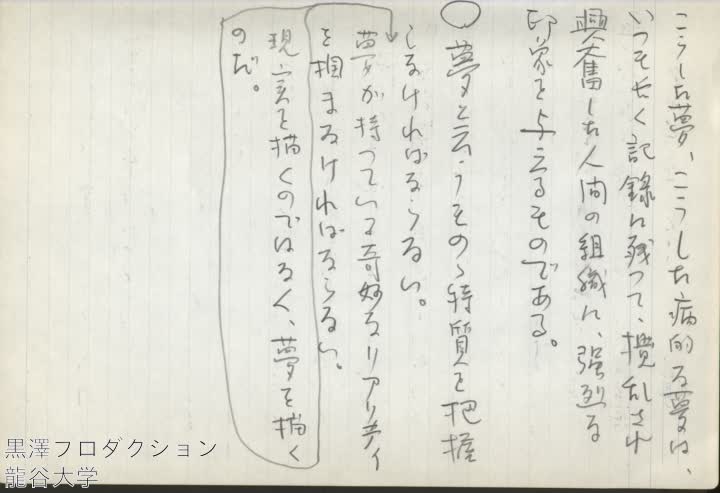 こうした夢、こうした病的な夢は、
いつも長く記録に残って、攪乱され
興奮した人間の組織に、強烈な
印象を与えるものである。
○夢と云うものゝ特質を把握
しなければならない。
夢が持っている奇妙なリアリティ
を掴まなければならない。
現実を描くのではなく、夢を描く
のだ。
黒澤プロダクション
龍谷大学